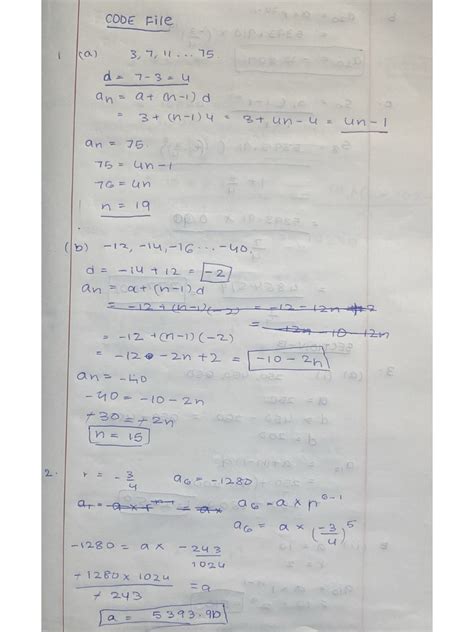 CODE File
1 (a) 3, 7, 11 ... 75
d = 7-3 = 4
an = a + (n-1) d
= 3 + (n-1) 4 = 3 + 4n - 4 = 4n - 1
an = 75
75 = 4n - 1
76 = 4n
n = 19
(b) -12, -14, -16 ... -40
d = -14 + 12 = -2
an = a + (n-1) d
= -12 + (n-1)(-2) = -12 - 12n
= -10 - 12n
= -12 + (n-1)(-2)
= -12 - 2n + 2 = -10 - 2n
an = -40
-40 = -10 - 2n
+30 = +2n
n = 15
2. r = -3/4 a6 = -1280 a6 = a × r^6-1
a6 = a × (-3/4)^5
-1280 = a × -243/1024
+1280 × 1024 / +243 = a
a = 5393.90